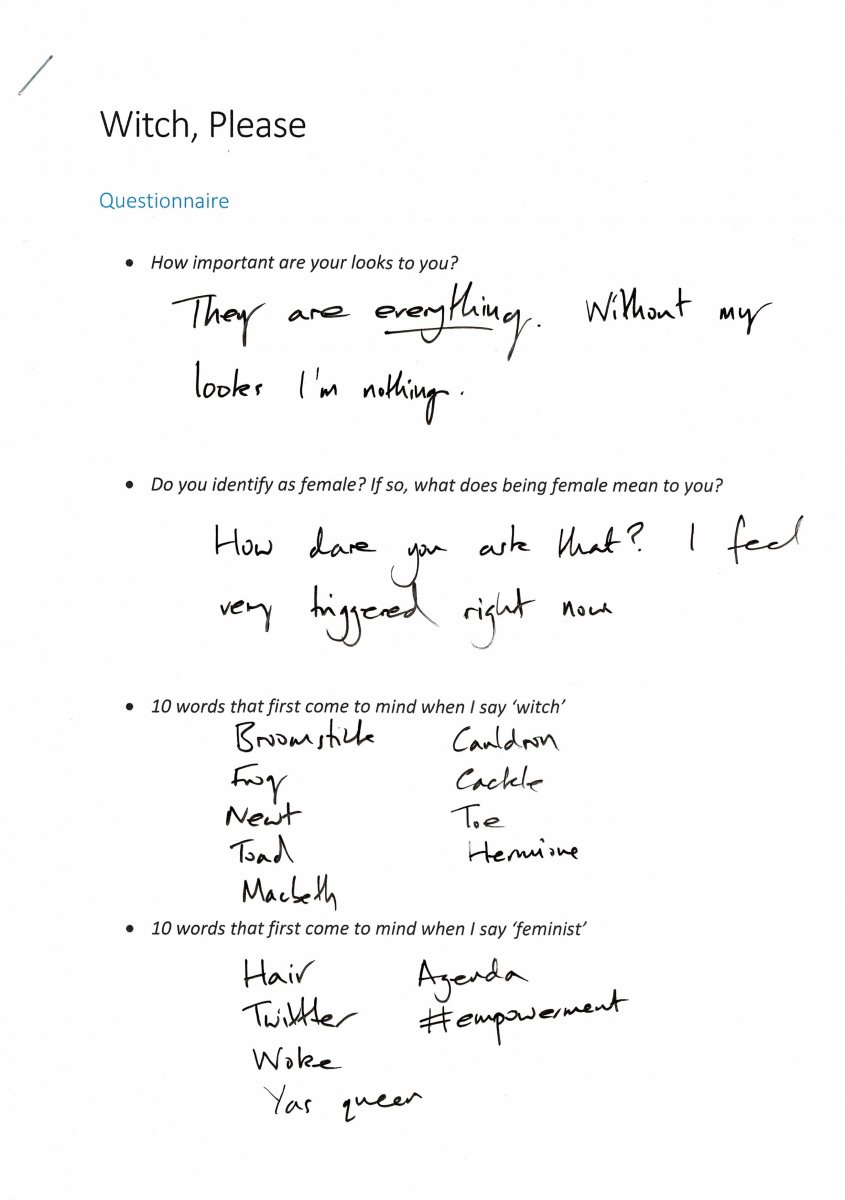 Witch, Please
Questionnaire
• How important are your looks to you?
They are everything. Without my
looks I'm nothing.
• Do you identify as female? If so, what does being female mean to you?
How dare you ask that? I feel
very triggered right now
• 10 words that first come to mind when I say 'witch'
Broomstick Cauldron
Frog Cackle
Newt Toe
Toad Hermione
Macbeth
• 10 words that first come to mind when I say 'feminist'
Hair Agenda
Twitter #empowerment
Woke
Yas queen